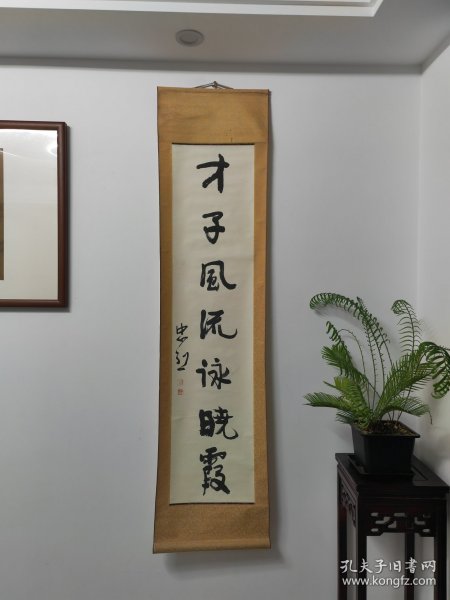 才子风流咏晓霞
孔夫子旧书网
www.kongfz.com